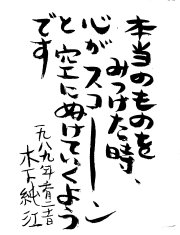 本当のものを
みつけた時、
心がスコーーン
と空にぬけていくよう
です
一九八九年
木下純江